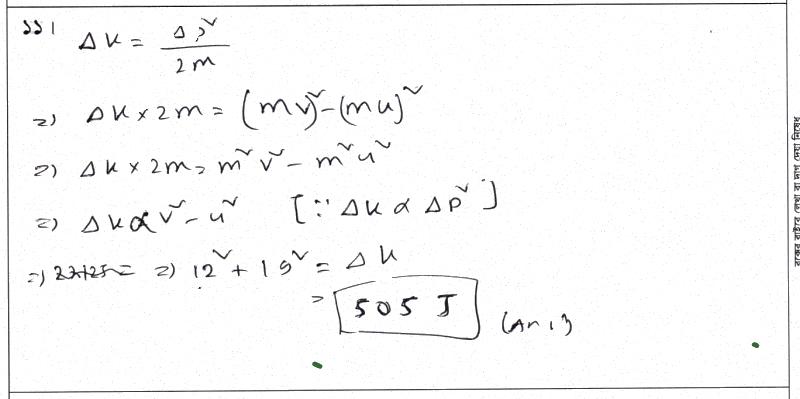 ১১। ΔK = Δp² / 2m
⇒) ΔK × 2m = (mv)² - (mu)²
⇒) ΔK × 2m = m²v² - m²u²
⇒) ΔK ∝ v² - u² [∵ ΔK ∝ Δp²]
⇒) ⇒) 12² + 19² = ΔK
= 505 J (Ans)
বক্সের বাইরে লেখা বা দাগ দেয়া নিষেধ